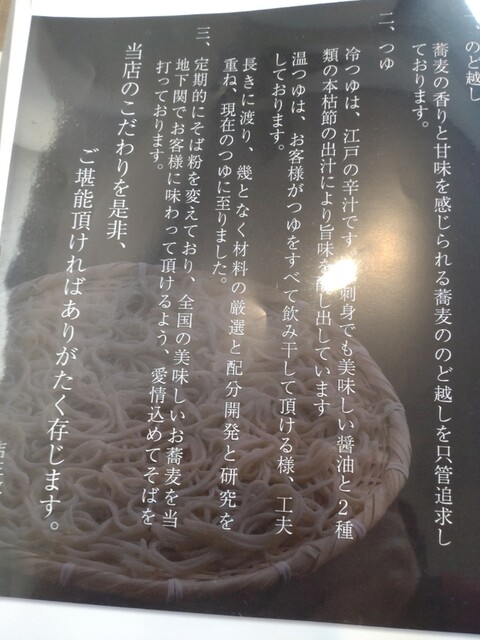 一、のど越し
蕎麦の香りと甘味を感じられる蕎麦ののど越しを只管追求し
ております。
二、つゆ
冷つゆは、江戸の辛汁です。刺身でも美味しい醤油と2種
類の本枯節の出汁により旨味を醸し出しています
温つゆは、お客様がつゆをすべて飲み干して頂ける様、工夫
しております。
長きに渡り、幾となく材料の厳選と配分開発と研究を
重ね、現在のつゆに至りました。
三、定期的にそば粉を変えており、全国の美味しいお蕎麦を当
地下関でお客様に味わって頂けるよう、愛情込めてそばを
打っております。
当店のこだわりを是非、
ご堪能頂ければありがたく存じます。
店主